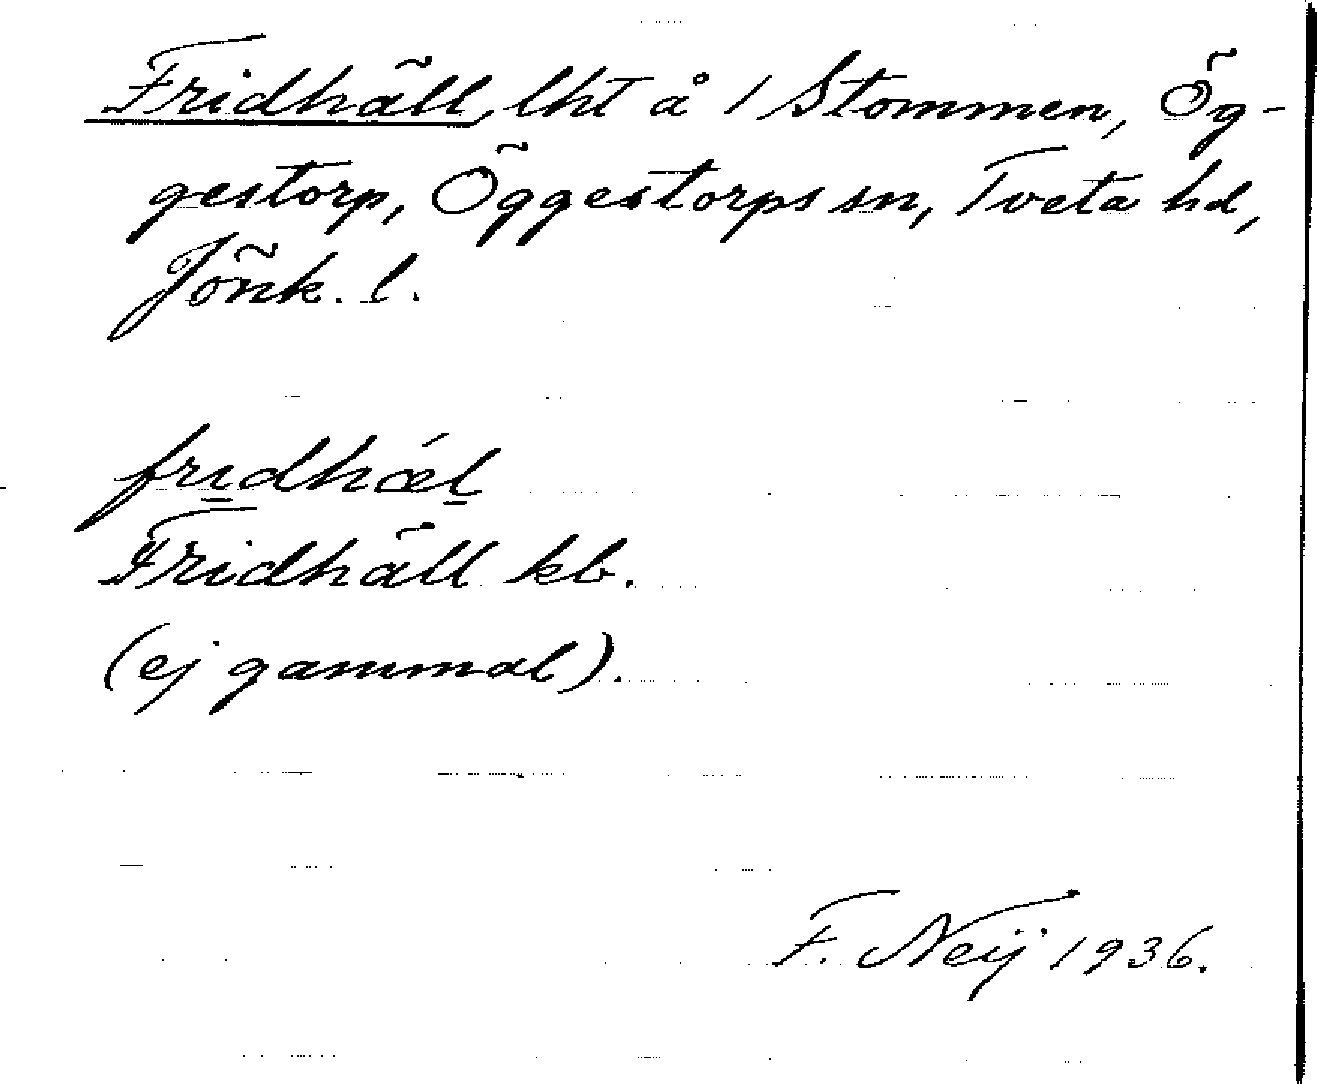 Fridhäll, lht å 1 Stommen, Ög-
gestorp, Öggestorps sn, Tveta hd,
Jönk. l.
fri̱dhǽḻ
Fridhäll kb.
(ej gammal).
F. Neij 1936.